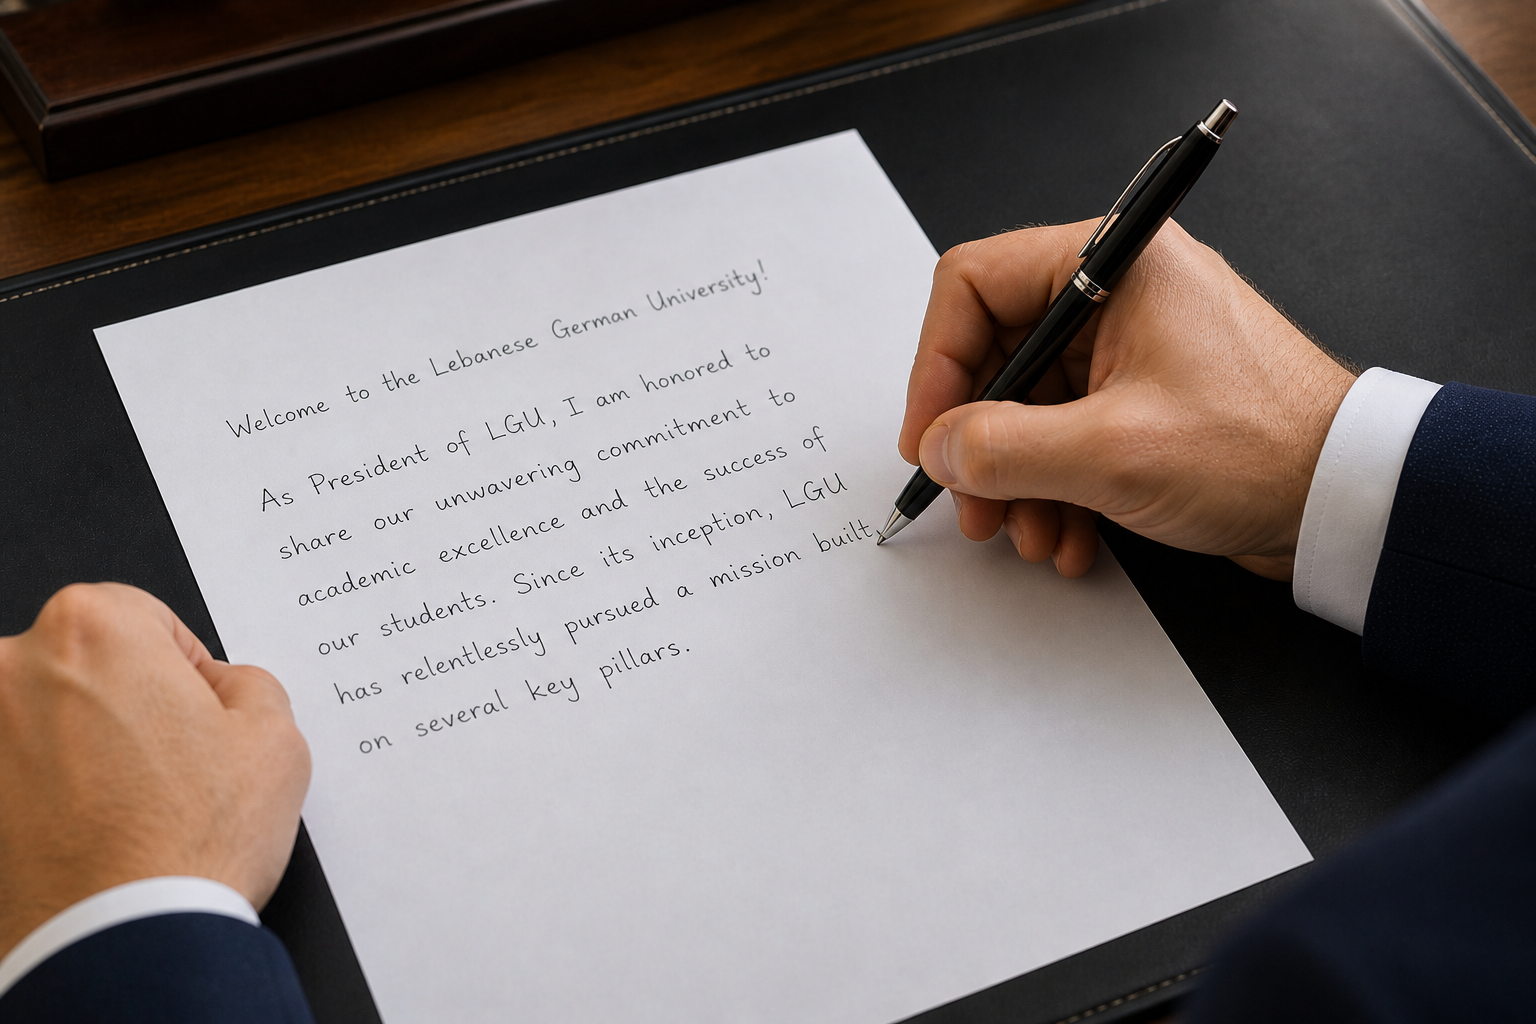 Welcome to the Lebanese German University!
As President of LGU, I am honored to
share our unwavering commitment to
academic excellence and the success of
our students. Since its inception, LGU
has relentlessly pursued a mission built
on several key pillars.